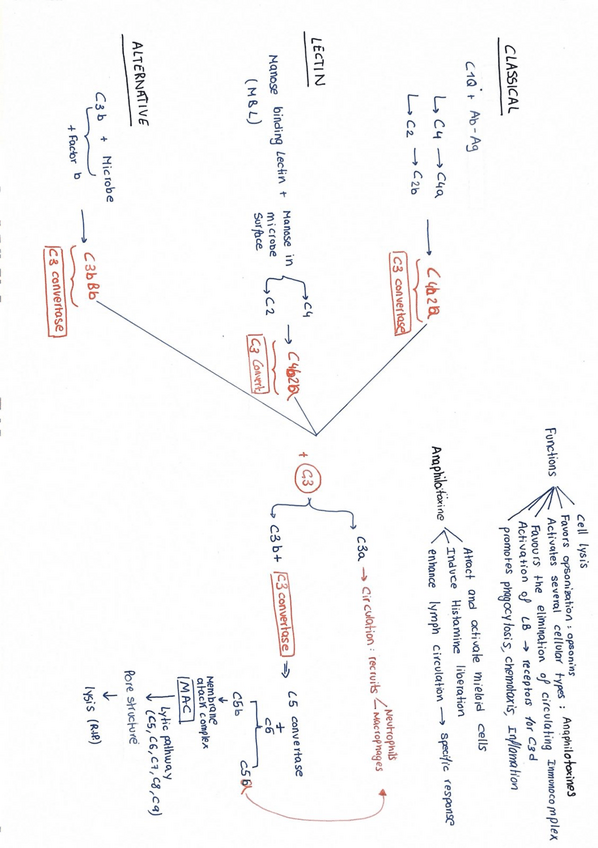 CLASSICAL
C1Q + Ab-Ag
C4 → C4a
C2 → C2b
C4b2a
C3 convertase
LECTIN
Manose binding Lectin +
(MBL)
Manose in
microbe
surface
C4
C2
C4b2a
C3 Convert
ALTERNATIVE
C3b + Microbe
+ Factor b
C3bBb
C3 convertase
+ C3
C3a → Circulation: recruits
Neutrophils
Macrophages
C3b + C3 convertase → C5 convertase
+
C5
C5b
C5a
Membrane
atack complex
MAC
Lytic pathway
(C5, C6, C7, C8, C9)
Pore structure
lysis (RHP)
Functions
Cell lysis
Favors opsonization: opsonins
Activates several cellular types: Anaphilotoxines
Favours the elimination of circulating Inmunocomplex
Activation of LB → receptors for C3d
promotes phagocytosis, chemotaxis, Inflamation
Anaphilotoxine
Attact and activate mieloid cells
Induce Histamine libiration
enhance lymph circulation → specific response